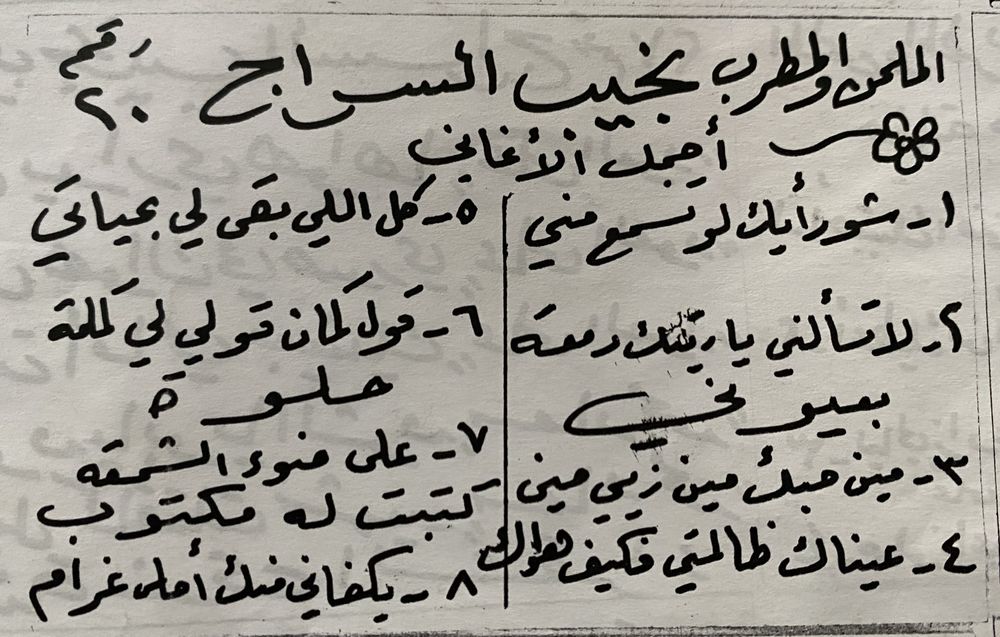 الملحن والمطرب نجيب السراج رقم ٢٠
أجمل الأغاني
١- شو رأيك لو تسمع مني
٢- لا تسألني يا ريتك دمعة
بعيوني
٣- مين حبك مين زيي مين
٤- عيناك ظالمتي فكيف هواك
٥- كل اللي بقى لي بحياتي
٦- قول كمان قولي لي كلمة
حلوة
٧- على ضوء الشمعة
كتبت له مكتوب
٨- يكفاني منك أحلى غرام